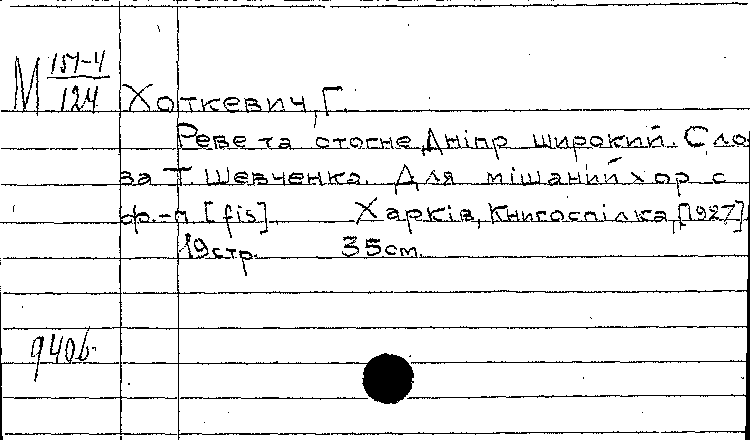 М 151-4
124
Хоткевич, Г.
Реве та стогне Дніпр широкий. Сло
ва Т. Шевченка. Для мішаний хор с
ф.-п. [fis] Харків, Книгоспілка, [1927]
19стр. 35cm.
940б.